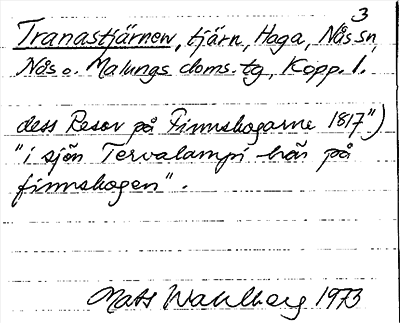 3
Tranastjärnen, tjärn, Haga, Nås sn,
Nås o. Malungs doms. tg, Kopp. l.
dess Resor på Finnskogarne 1817")
"i sjön Tervalampi här på
finnskogen".
Mats Wahlberg 1973